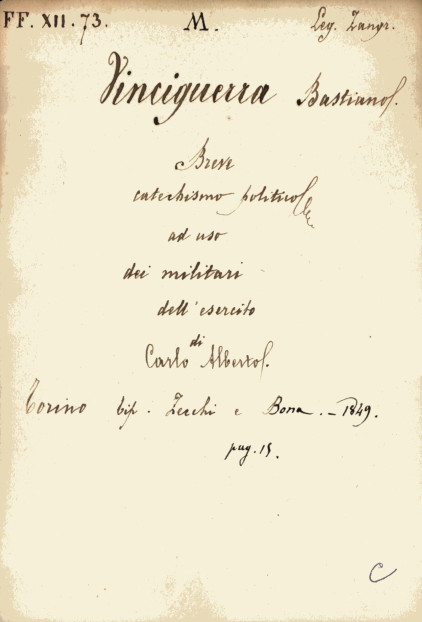 FF. XII. 73. M. Leg. Zangr.
Vinciguerra Bastiano.
Breve
catechismo politico
ad uso
dei militari
dell'esercito
di
Carlo Alberto.
Torino tip. Zecchi e Bona. - 1849.
pag. 15.
C